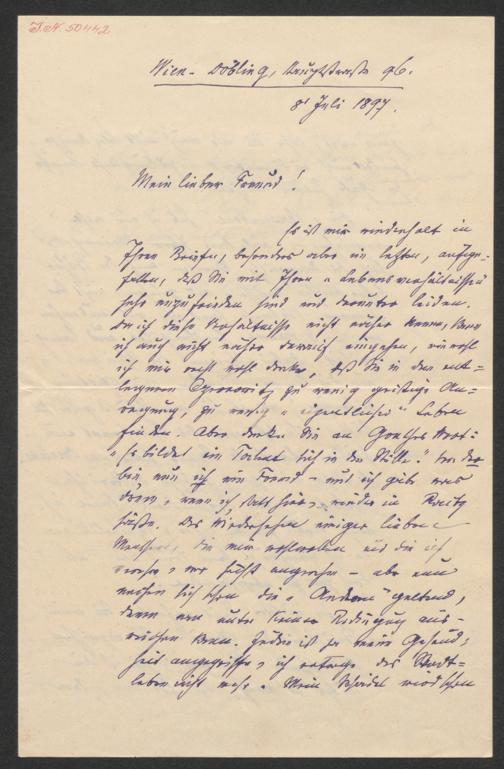 I.N. 50442
Wien-Döbling, Hauptstraße 96.
8t Juli 1897.
Mein lieber Freund!
Es ist mir wiederholt in
Ihren Briefen, besonders aber im letzten, aufge-
fallen, daß Sie mit Ihren „Lebensverhältnissen"
sehr unzufrieden sind und darunter leiden.
Da ich diese Verhältnisse nicht näher kenne, kann
ich auch nicht näher darauf eingehen, wiewohl
ich mir recht wohl denke, daß Sie in dem ent-
legenen Czernowitz zu wenig geistige An-
regung, zu wenig „eigentliches" Leben
finden. Aber denken Sie an Goethes Wort:
„Es bildet ein Talent sich in der Stille."
bin nun ich ein Freund – und ich gäbe was
drum, wenn ich, statt hier, wieder in Raitz
säße. Das Wiedersehen einiger lieben
Menschen, die mir wohlwollen und die ich
war höchst angenehm – aber nun
machen sich schon die „Andern" geltend,
denen man unter keiner Bedingung aus-
weichen kann. Zudem ist ja meine Gesund-
heit angegriffen, ich vertrage das Stadt-
leben nicht mehr. Mein Schädel wird schon